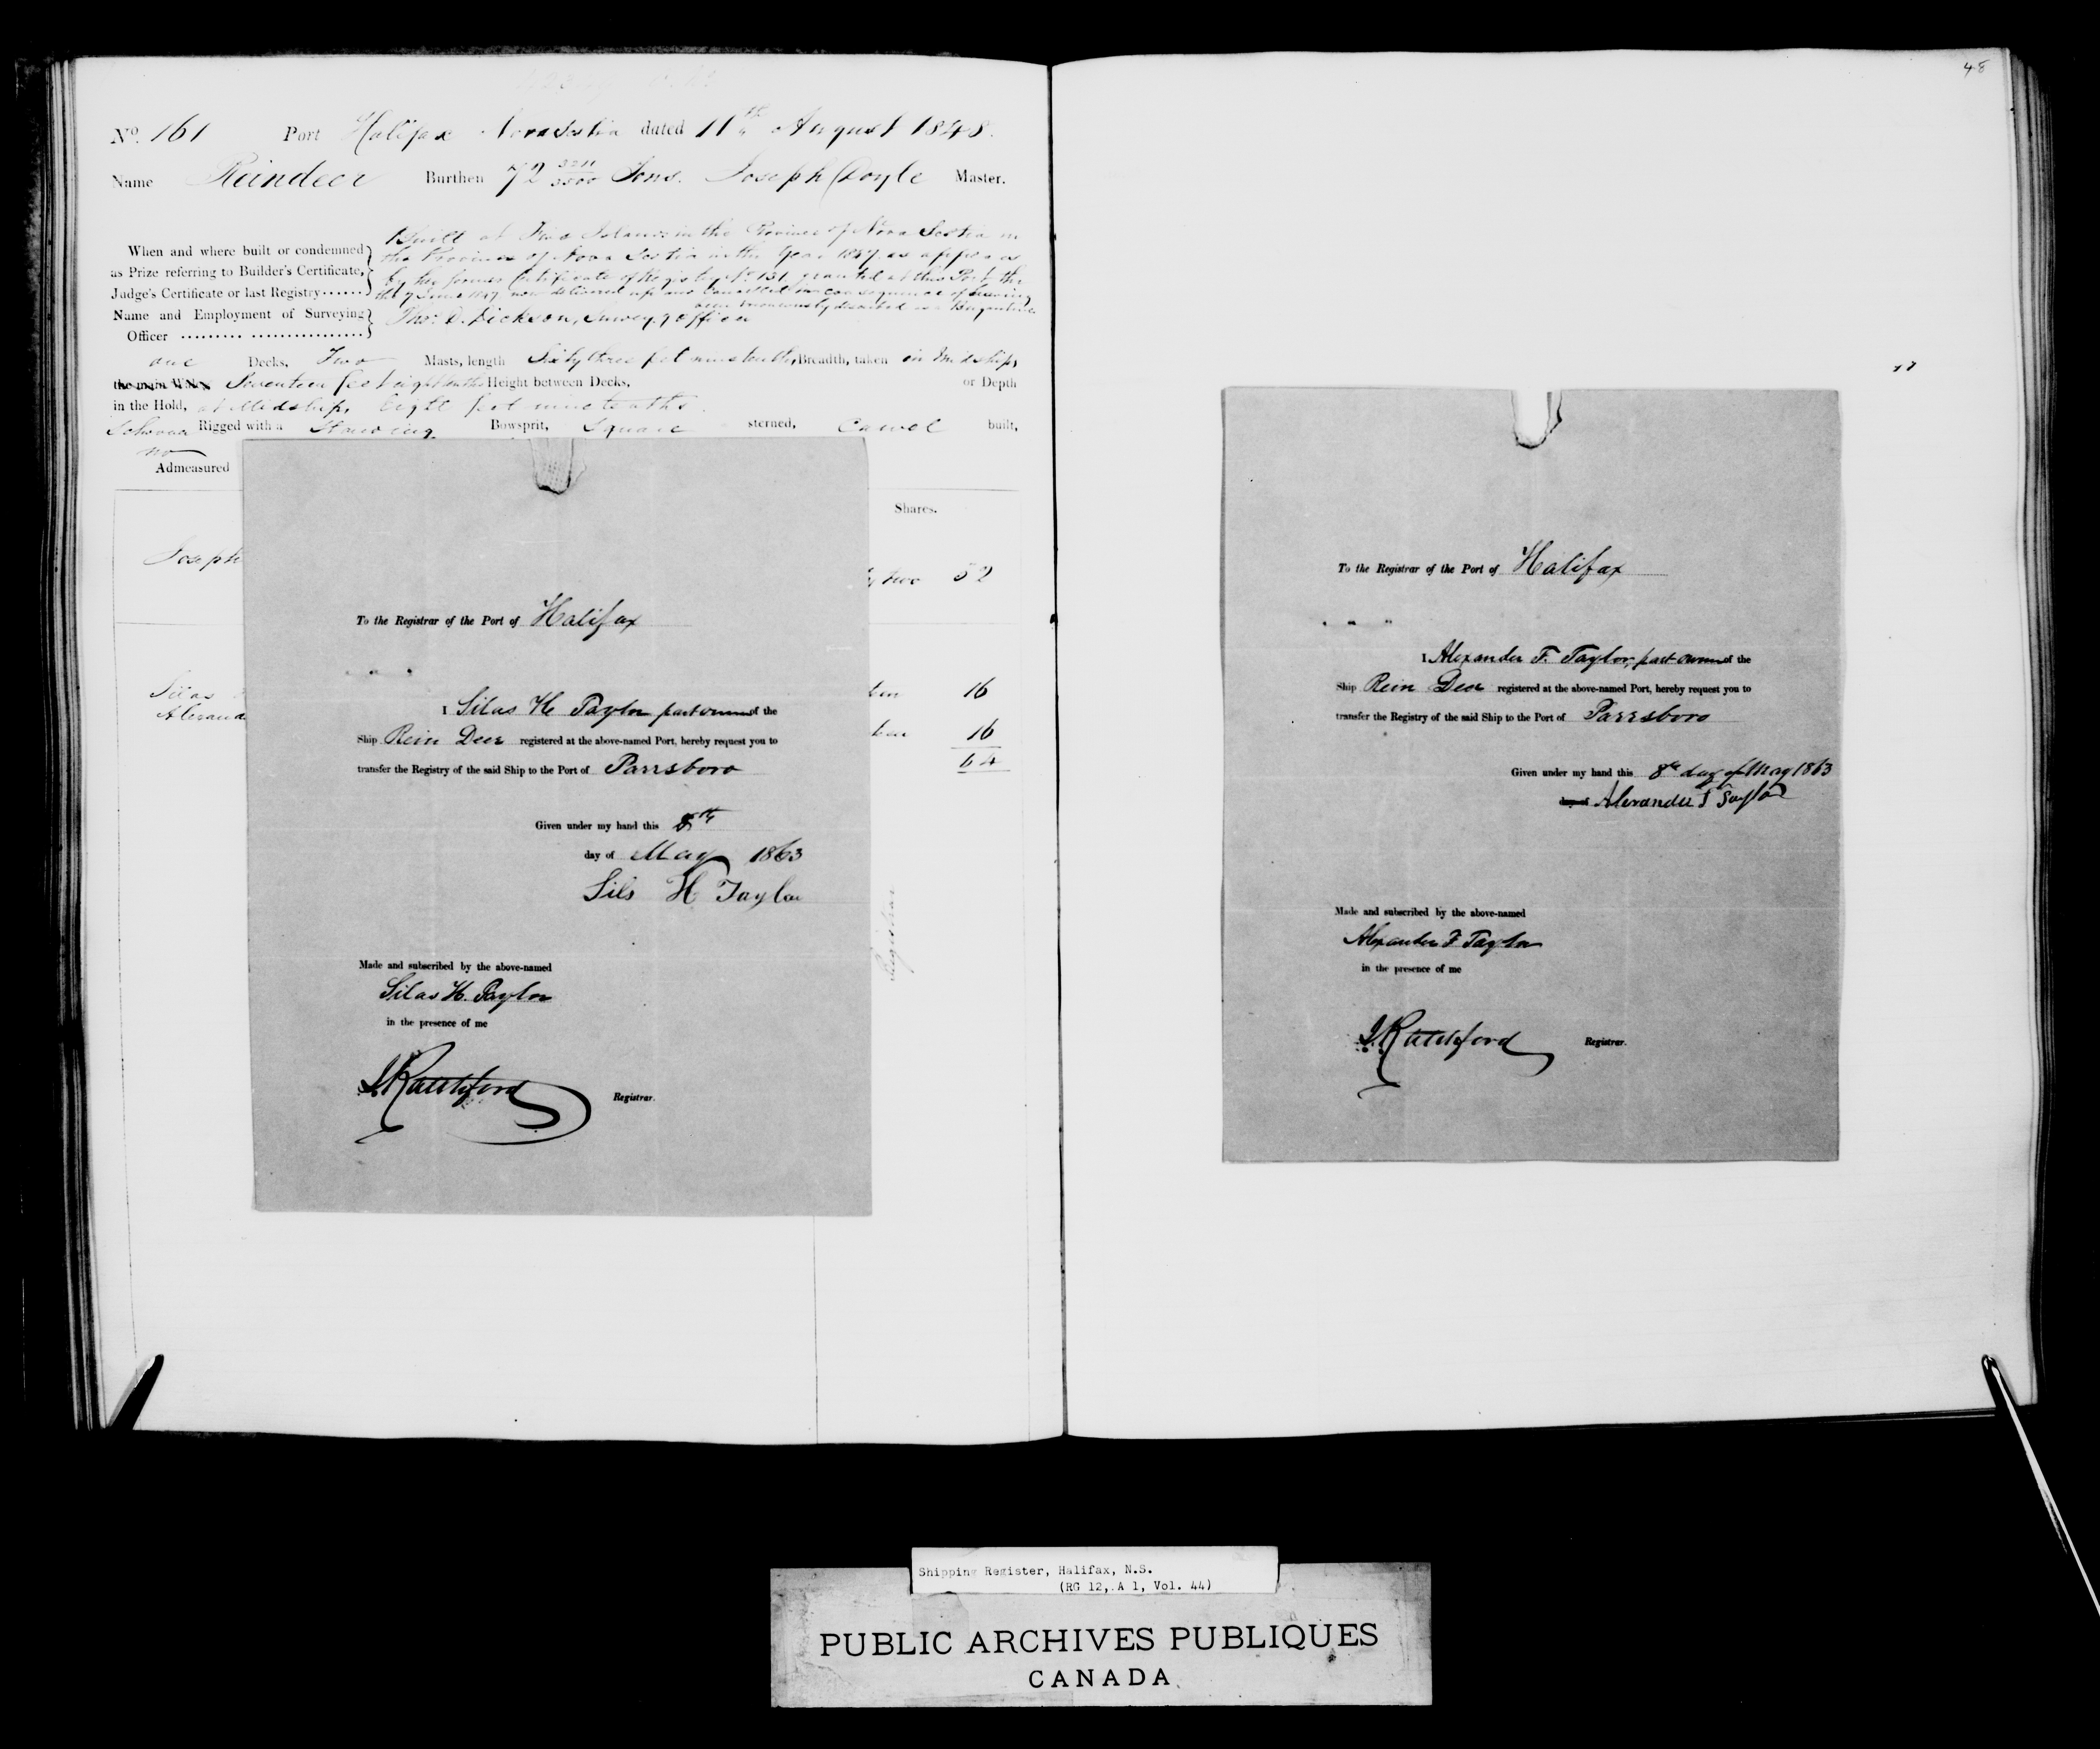 48
No. 161 Port Halifax Nova Scotia dated 11th August 1848.
Name Reindeer Burthen 72 3500 Tons. Joseph Doyle Master.
When and where built or condemned
as Prize referring to Builder's Certificate,
Judge's Certificate or last Registry
Built at Islands in the Province of Nova Scotia in
the Province of Nova Scotia in the Year 1847 as appears
by her former Certificate of Registry No 131 granted at this Port the
the 7 June 1847 now delivered up and Cancelled in consequence of having
been erroneously described as a Brigantine
Name and Employment of Surveying
Officer
Thos. D. Dickson, Surveyg officer
one Decks, Two Masts, length Sixty three feet nine tenths, Breadth, taken in Midships,
the main Wales Seventeen feet eight tenths Height between Decks, or Depth
in the Hold, at Midships, Eight feet nine tenths.
Schooner Rigged with a Standing Bowsprit, Square sterned, Carvel built,
no
Admeasured
Shares.
Joseph
two 32
Silas
16
Alexand
16
64
Registrar
To the Registrar of the Port of Halifax
I Silas H Taylor part owner of the
Ship Rein Deer registered at the above-named Port, hereby request you to
transfer the Registry of the said Ship to the Port of Parrsboro
Given under my hand this 8th
day of May 1863
Sils H Taylor
Made and subscribed by the above-named
Silas H. Taylor
in the presence of me
Ratchford
Registrar.
To the Registrar of the Port of Halifax
I Alexander F. Taylor, part owner of the
Ship Rein Deer registered at the above-named Port, hereby request you to
transfer the Registry of the said Ship to the Port of Parrsboro
Given under my hand this 8th day of May 1863
day of Alexander F Taylor
Made and subscribed by the above-named
Alexander F Taylor
in the presence of me
Ratchford
Registrar.
Shipping Register, Halifax, N.S.
(RG 12, A 1, Vol. 44)
PUBLIC ARCHIVES PUBLIQUES
CANADA